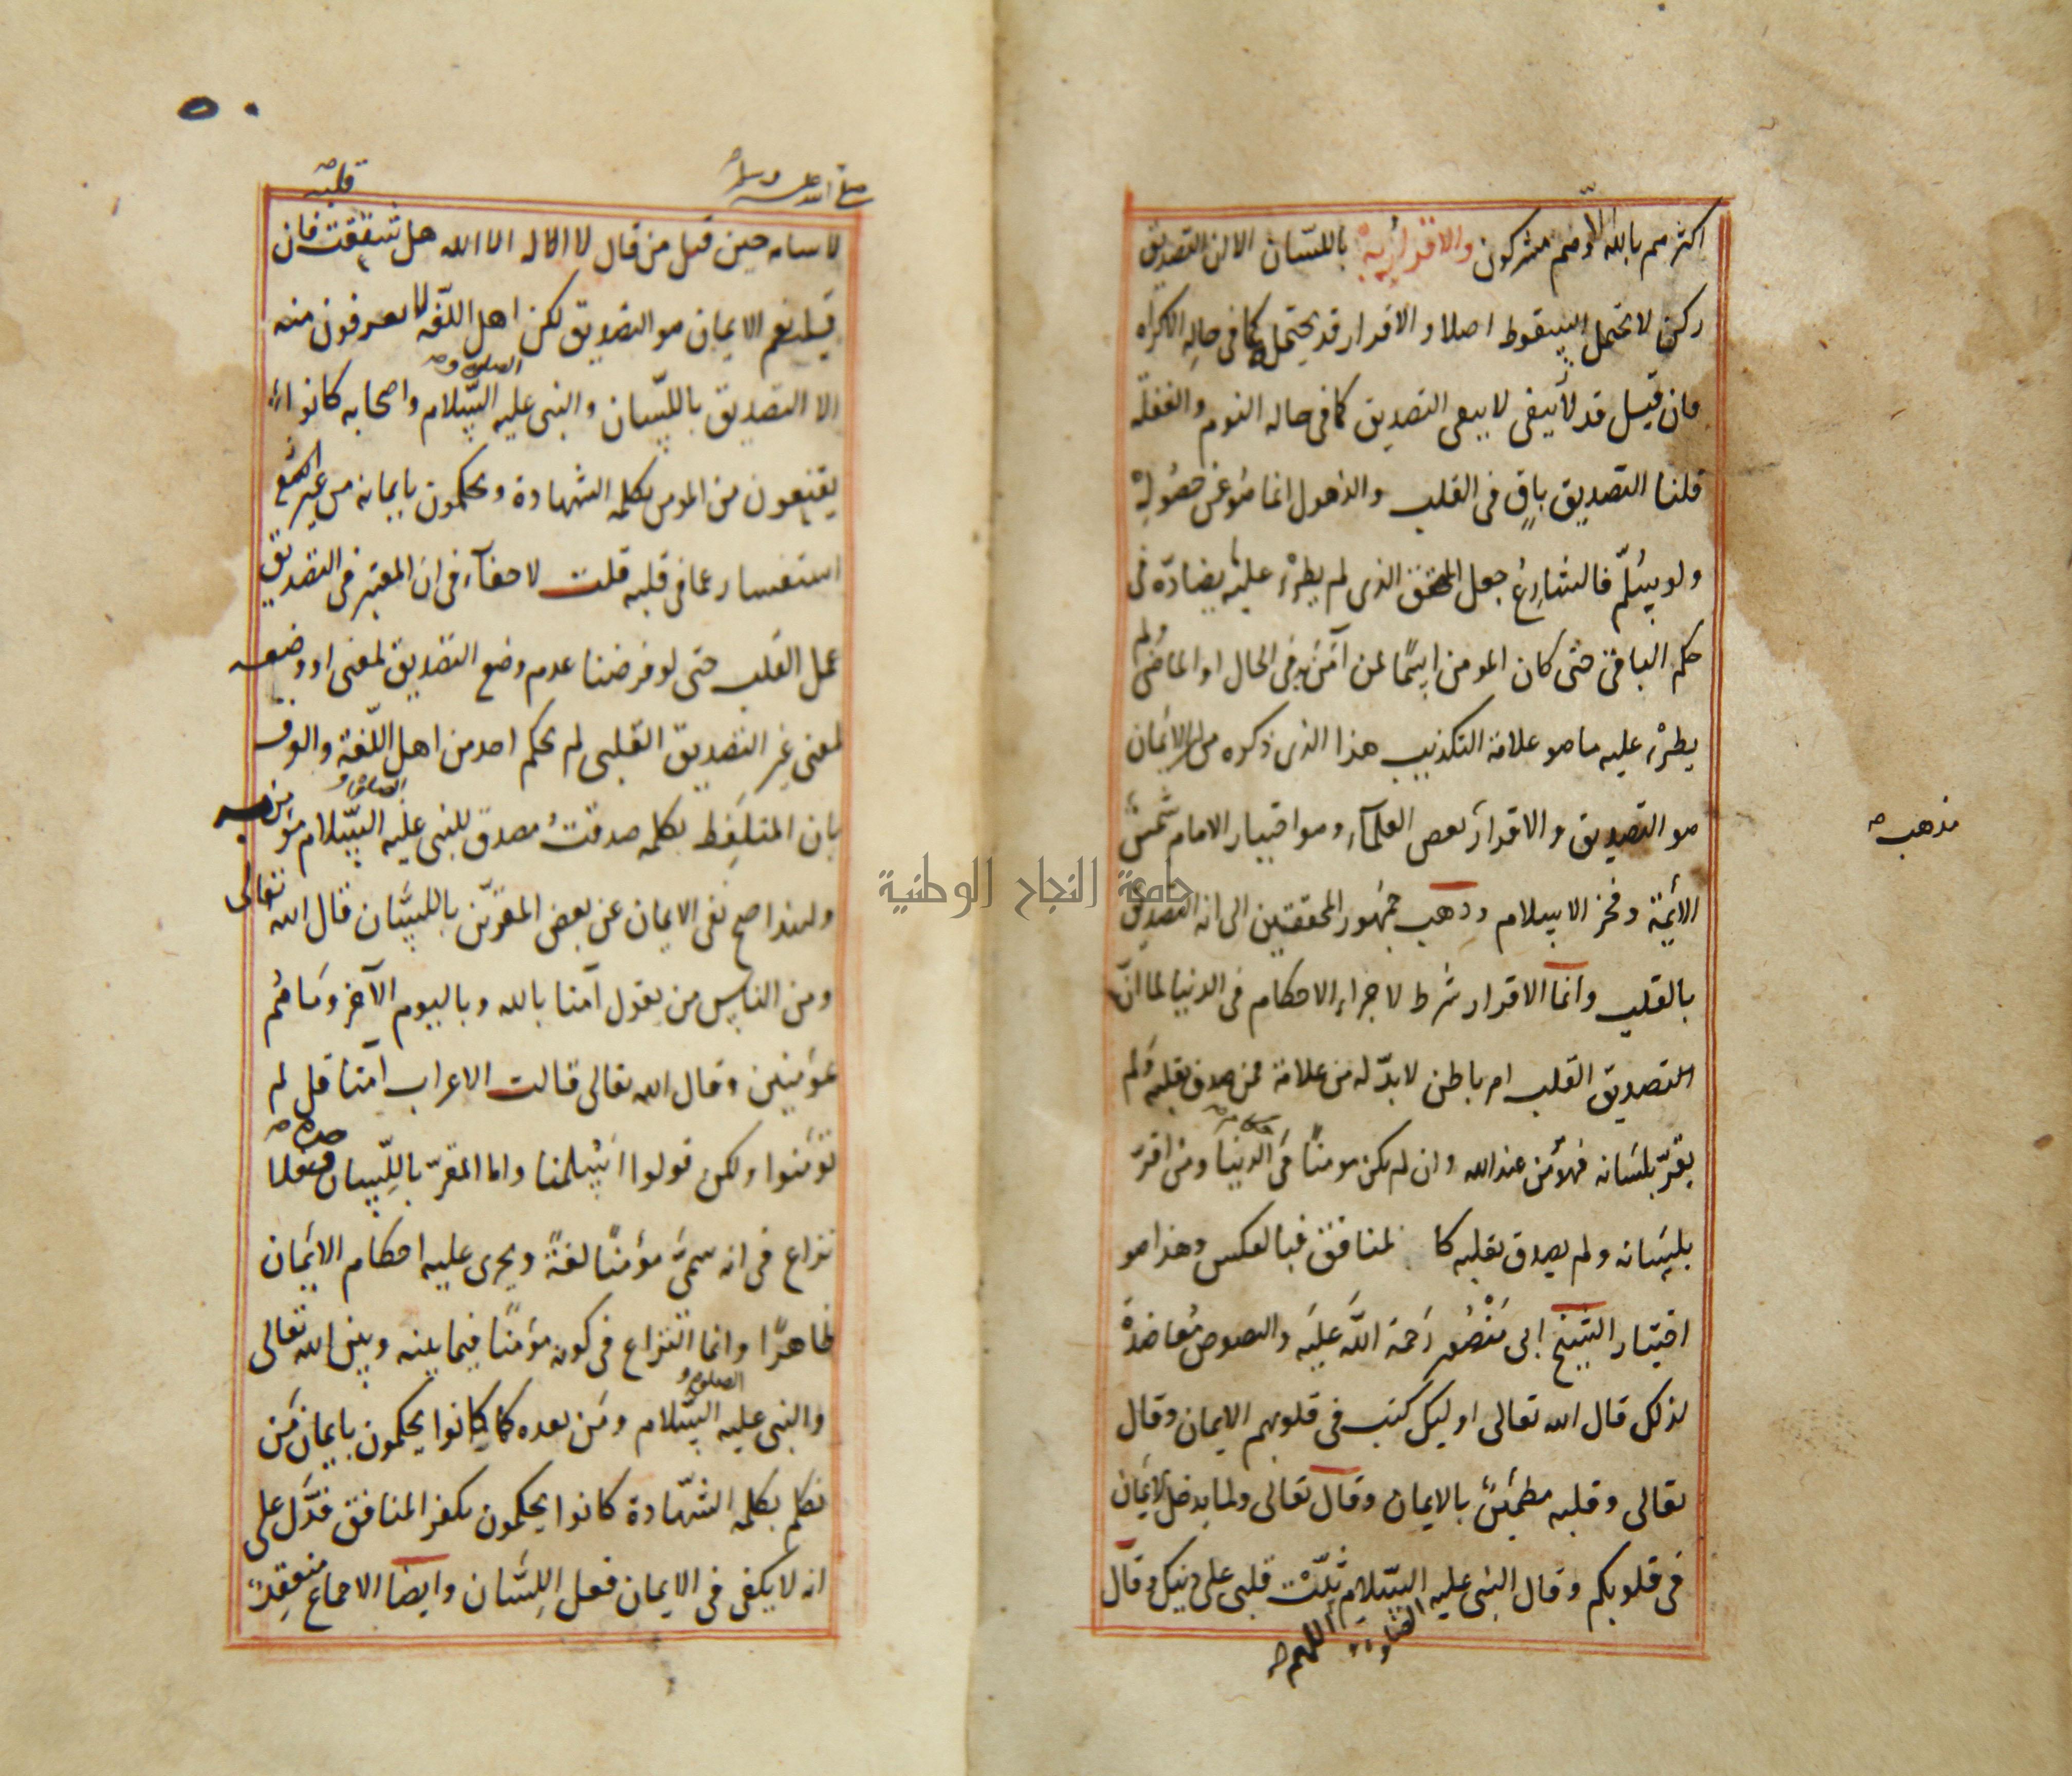 اكثرهم بالله الا وهم مشركون والاقرار به باللسان الا ان التصديق
ركن لا يحتمل السقوط اصلا والاقرار قد يحتمله كما في حالة الاكراه
فان قيل قد لا يبقى التصديق كما في حالة النوم والغفلة
قلنا التصديق باقٍ في القلب والذهول انما هو عن حصوله
ولو سلّم فالشارع جعل المحقق الذي لم يطرء عليه يضادّه في
حكم الباقي حتى كان المومن اسمًا لمن آمن في الحال او الماضي ولم
يطرء عليه ما هو علامة التكذيب هذا الذي ذكره من ان الايمان
هو التصديق والاقرار بعض العلمآء وهو اختيار الامام شمس
مذهب صح
الأيمّة وفخر الاسلام وذهب جمهور المحققين الى انه التصديق
بالقلب وانما الاقرار شرط لاجراء الاحكام في الدنيا لما انّ
التصديق القلب امر باطن لا بدّ له من علامة فمن صدق بقلبه ولم
يقرّ بلسانه فهو مؤمن عند الله وان لم يكن مومنًا في الدنيا ومن اقرّ
بلسانه ولم يصدق بقلبه كالمنافق فبالعكس وهذا هو
اختيار الشيخ ابي منصور رحمة الله عليه والنصوص مُعاضدةٌ
لذلك قال الله تعالى اوليك كتب في قلوبهم الايمان وقال
تعالى وقلبه مطمئن بالايمان وقال تعالى ولما يدخل الايمان
في قلوبكم وقال النبي عليه السلام ثبّت قلبي على دينك وقال
الصلوة و اللهم صح
٥٠
صلى الله عليه وسلم قلبه صح
لاسامه حين قتل من قال لا اله الا الله هل شققت فان
قيل نعم الايمان هو التصديق لكن اهل اللغة لا يعرفون منه
الا التصديق باللسّان والنبي عليه الصلوة و السّلام واصحابه كانوا
يقنعون من المومن بكلمه الشهادة ويحكمون بايمانه من غير
استفسار عما في قلبه قلت لا خفآء في ان المعتبر في التصديق
عمل القلب حتى لو فرضنا عدم وضع التصديق لمعنى او وضعه
لمعنى غير التصديق القلبي لم يحكم احد من اهل اللّغة والعرف
بان المتلفظ بكلمه صدقتُ مصدق للنبي عليه الصلوة و السّلام مؤمن به
ولهذا صح نفي الايمان عن بعض المقرّين باللسّان قال الله تعالى
ومن الناس من يقول آمنا بالله وباليوم الآخر وما هُم
بمؤمنين وقال الله تعالى قالت الاعراب آمنا قل لم
تؤمنوا ولكن قولوا اسْلمنا واما المقرّ باللّسان وحده صح فلا
نزاع في انه سمىّ مؤمنًا لغةً ويجرى عليه احكام الايمان
ظاهرًا وانما النزاع في كونه مؤمنًا فيما بينه وبين الله تعالى
والنبي عليه الصلوة و السّلام ومَن بعده كما كانوا يحكمون بايمان مَن
تكلم بكلمه الشّهادة كانوا يحكمون بكفر المنافق فدَّل على
انه لا يكفى في الايمان فعل اللِسَّان وايضا الاجماع منعقد
جامعة النجاح الوطنية